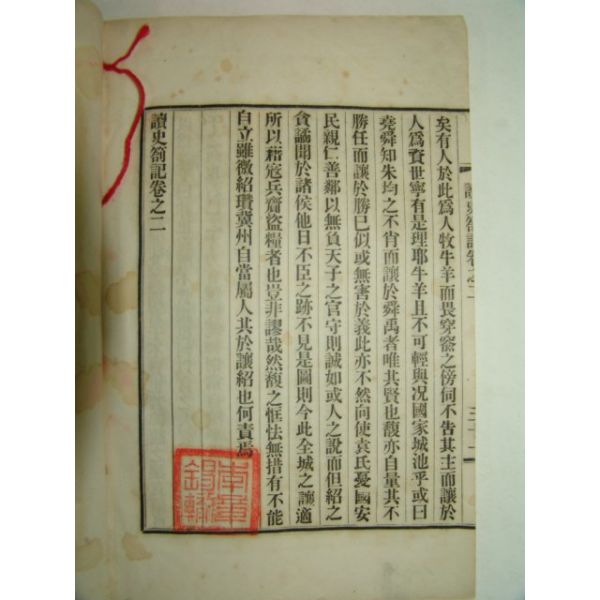 讀史劄記卷之二
矣有人於此爲人牧牛羊而畏穿窬之傍伺不告其主而讓於
人爲賚世寧有是理耶牛羊且不可輕與况國家城池乎或曰
堯舜知朱均之不肖而讓於舜禹者唯其賢也馥亦自量其不
勝任而讓於勝已似或無害於義此亦不然向使袁氏憂國安
民親仁善鄰以無負天子之官守則誠如或人之說而但紹之
貪譎聞於諸侯他日不臣之跡不見是圖則今此全城之讓適
所以藉寇兵齎盜糧者也豈非謬哉然馥之恇怯無措有不能
自立雖微紹瓚冀州自當屬人其於讓紹也何責焉
讀史劄記卷之二